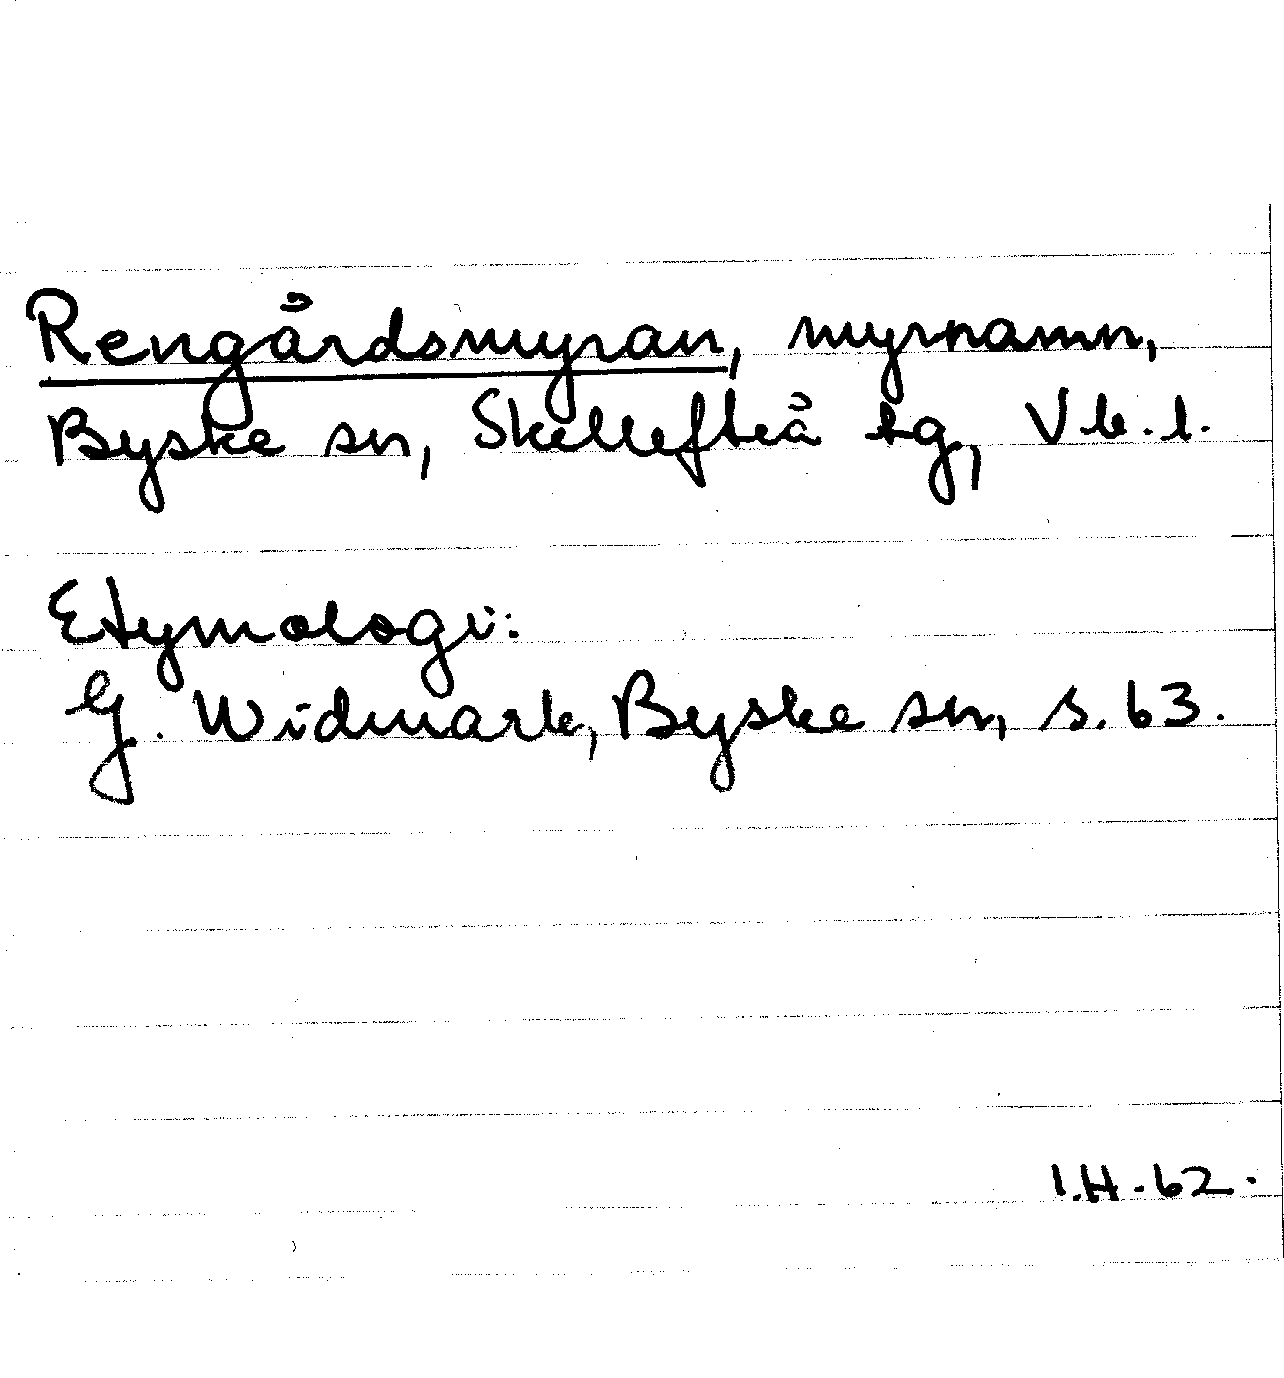 Rengårdsmyran, myrnamn,
Byske sn, Skellefteå tg, Vb.l.
Etymologi:
G. Widmark, Byske sn, s. 63.
I.H. 62.